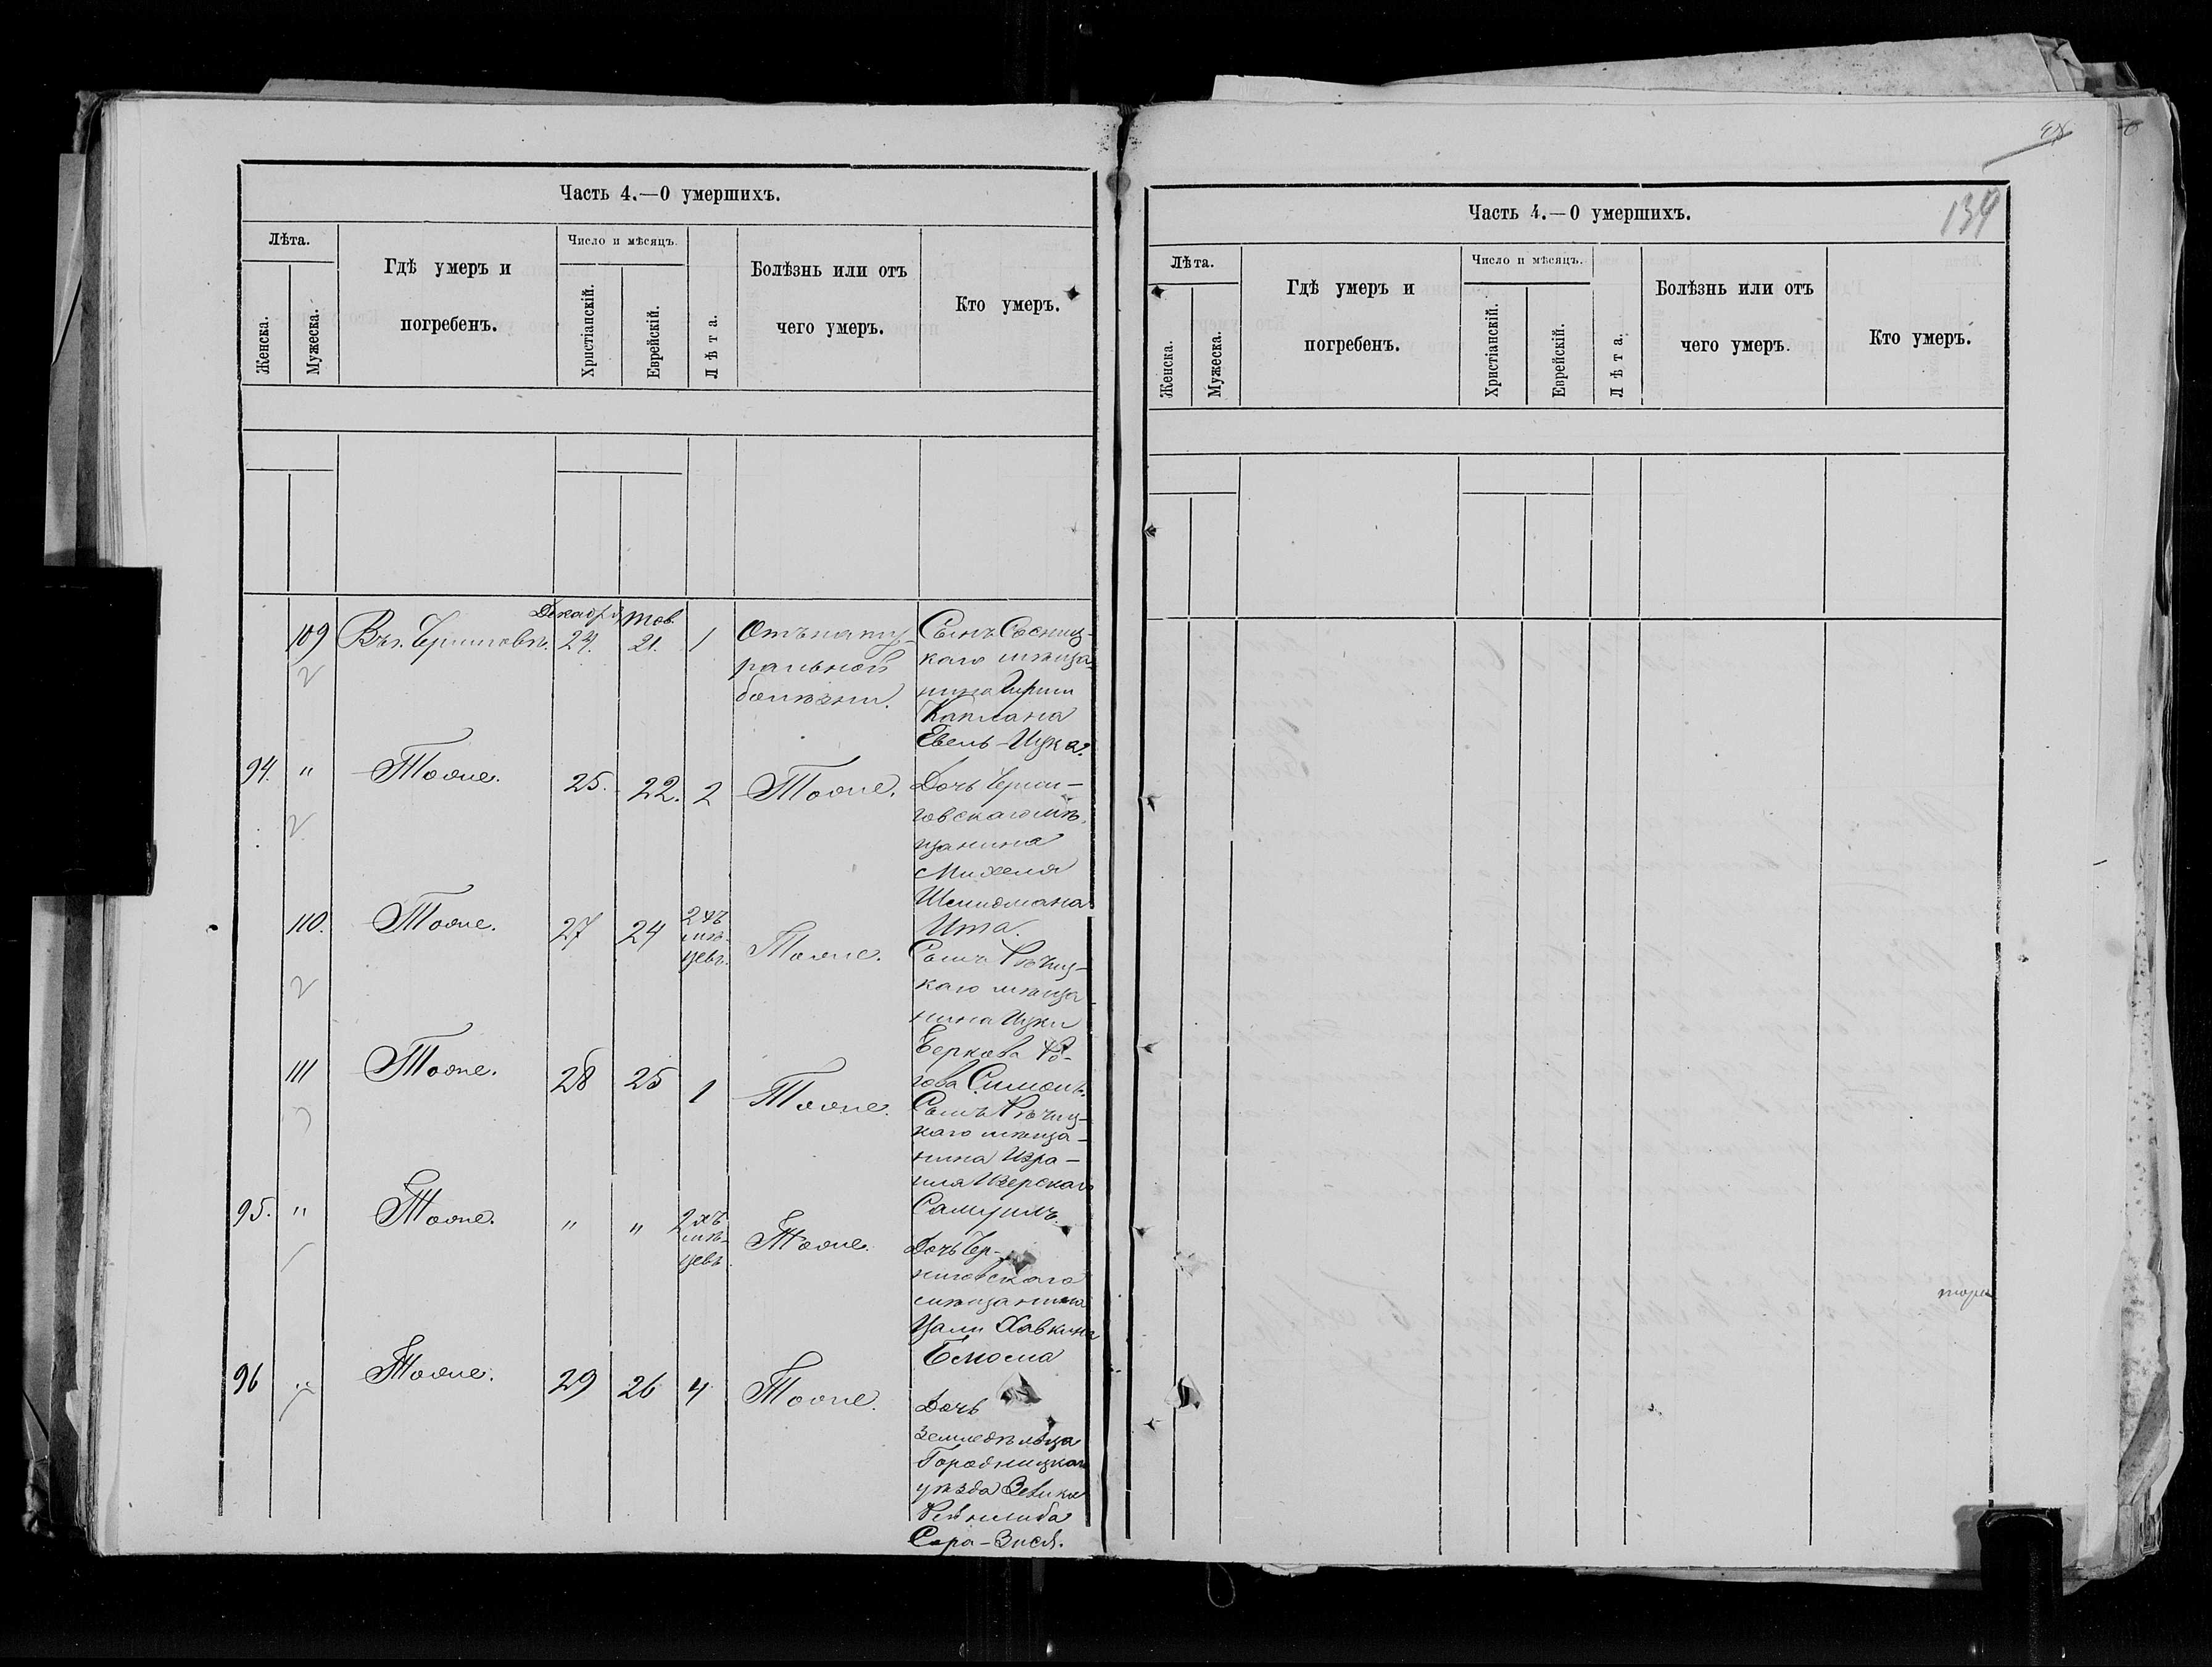 Часть 4.—О умершихъ.
Лѣта.
Женска.
Мужеска.
Гдѣ умеръ и
погребенъ.
Число и мѣсяцъ.
Христіанскій.
Еврейскій.
Лѣта.
Болѣзнь или отъ
чего умеръ.
Кто умеръ.
109
Въ г. Черниговѣ.
Декабря
24.
Тов.
21.
1
Отъ нату-
ральной
болѣзни.
Сынъ Сосниц-
каго мѣща-
нина Гирши
Каплана
Евель-Ицка.
94.
"
Тоже.
25.
22.
2
Тоже.
Дочь Черни-
говскаго мѣ-
щанина
Михеля
Ита.
110.
Тоже.
27
24
2 хъ
мѣ-
цевъ.
Тоже.
Сынъ Рѣчиц-
каго мѣща-
нина Ицки
Беркова
Симонъ.
111
Тоже.
28
25
1
Тоже.
Сынъ Рѣчиц-
каго мѣща-
нина Изра-
иля
Самуилъ.
95.
"
Тоже.
"
"
2 хъ
мѣ-
цевъ
Тоже.
Дочь Чер-
ниговскаго
мѣщанина
Цали Хавкина
Блюма
96
"
Тоже.
29
26
4
Тоже.
Дочь
земледѣльца
Городницкаго
уѣзда
Сора-Зися.
Часть 4.—О умершихъ.
134
Лѣта.
Женска.
Мужеска.
Гдѣ умеръ и
погребенъ.
Число и мѣсяцъ.
Христіанскій.
Еврейскій.
Лѣта.
Болѣзнь или отъ
чего умеръ.
Кто умеръ.